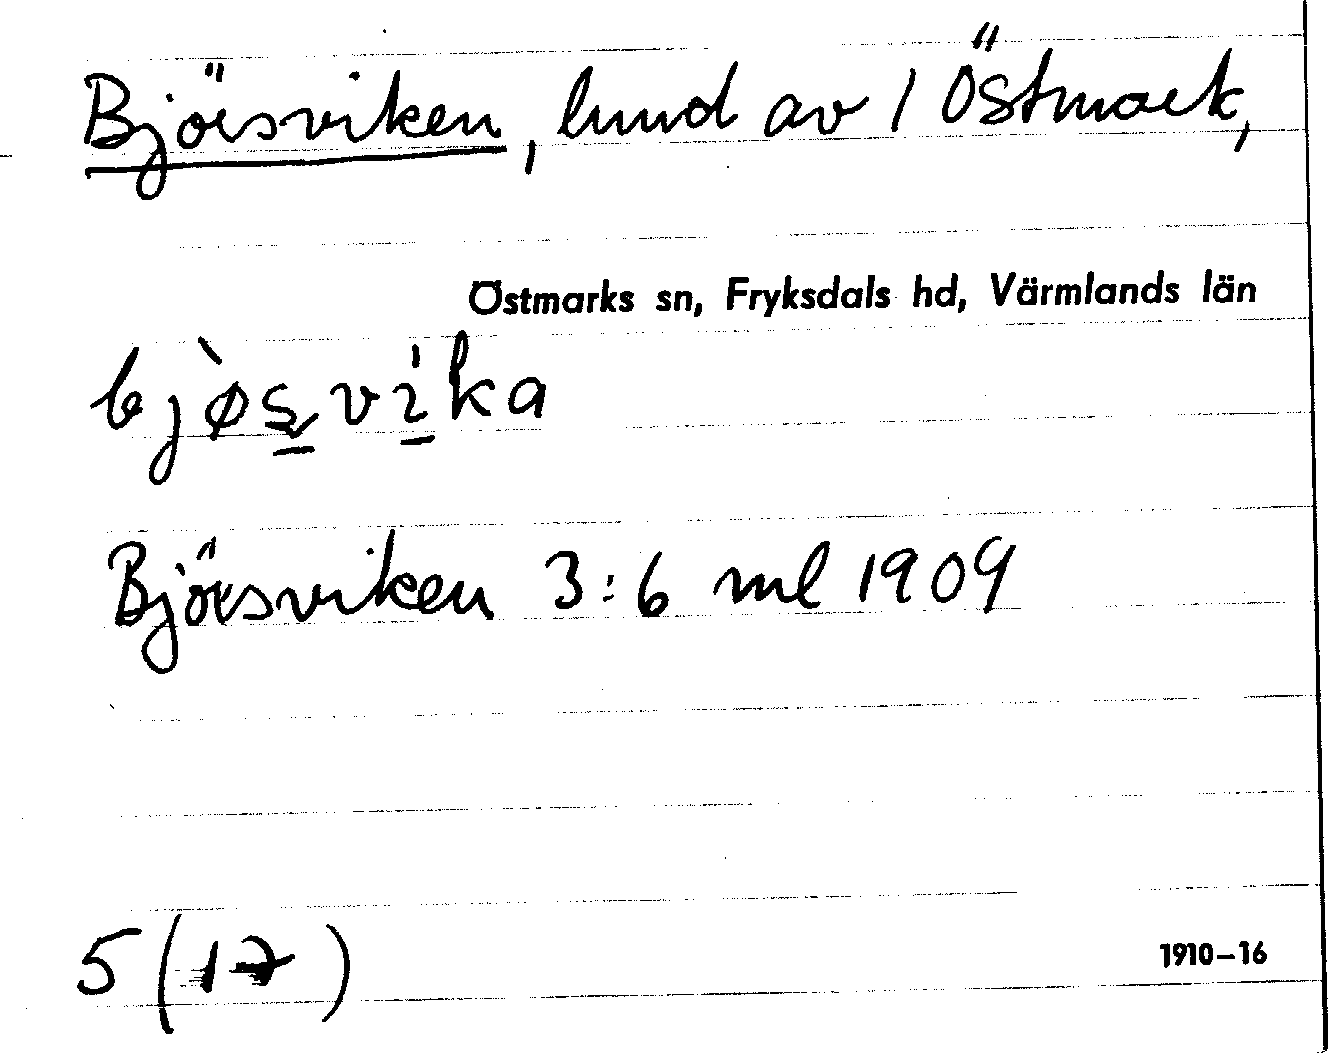 Björsviken, lund av 1 Östmark,
Östmarks sn, Fryksdals hd, Värmlands län
bjø̀s̠vi̠ka
Björsviken 3:6 ml 1909
5 (17)
1910–16